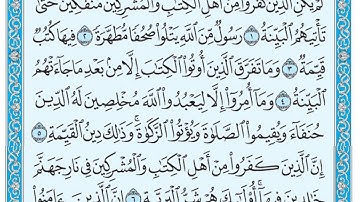 لَمْ يَكُنِ الَّذِينَ كَفَرُوا مِنْ أَهْلِ الْكِتَٰبِ وَالْمُشْرِكِينَ مُنفَكِّينَ حَتَّىٰ
تَأْتِيَهُمُ الْبَيِّنَةُ ١ رَسُولٌ مِّنَ اللَّهِ يَتْلُوا صُحُفًا مُّطَهَّرَةً ٢ فِيهَا كُتُبٌ
قَيِّمَةٌ ٣ وَمَا تَفَرَّقَ الَّذِينَ أُوتُوا الْكِتَٰبَ إِلَّا مِن بَعْدِ مَا جَاءَتْهُمُ
الْبَيِّنَةُ ٤ وَمَا أُمِرُوا إِلَّا لِيَعْبُدُوا اللَّهَ مُخْلِصِينَ لَهُ الدِّينَ
حُنَفَاءَ وَيُقِيمُوا الصَّلَوٰةَ وَيُؤْتُوا الزَّكَوٰةَ ۚ وَذَٰلِكَ دِينُ الْقَيِّمَةِ ٥
إِنَّ الَّذِينَ كَفَرُوا مِنْ أَهْلِ الْكِتَٰبِ وَالْمُشْرِكِينَ فِي نَارِ جَهَنَّمَ
خَٰلِدِينَ فِيهَا ۚ أُولَٰئِكَ هُمْ شَرُّ الْبَرِيَّةِ ٦ إِنَّ الَّذِينَ ءَامَنُوا